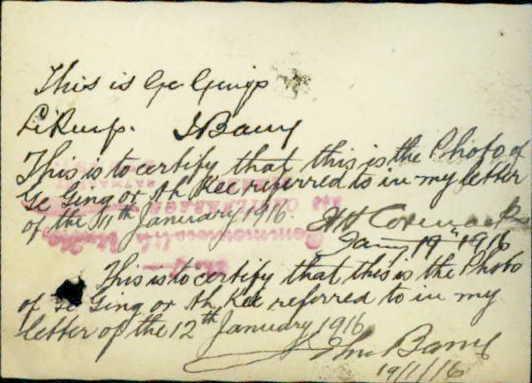 This is Ge Gings
Likeness. J Barry
This is to certify that this is the Photo of
Ge Ging or Ah Kee referred to in my letter
of the 11th January 1916.
Jany 19th 1916
This is to certify that this is the Photo
of Ge Ging or Ah Kee referred to in my
letter of the 12th January 1916
Jno Barry
19/1/16